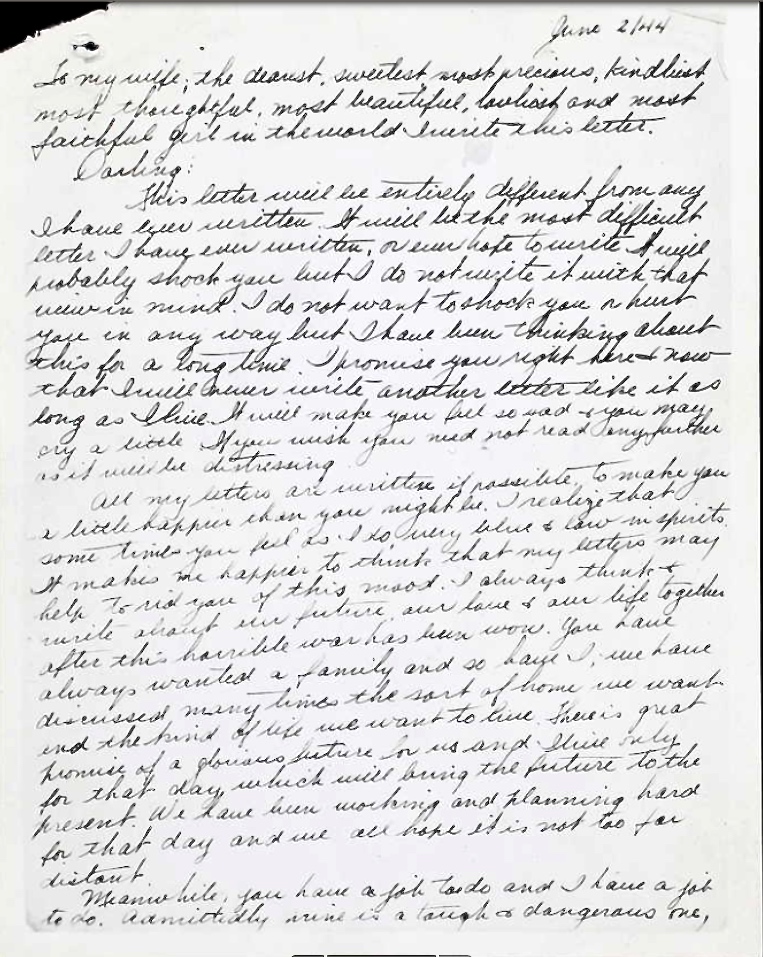 June 2/44
To my wife; the dearest, sweetest most precious, kindliest
most thoughtful, most beautiful, lovliest and most
faithful girl in the world I write this letter.
Darling:
This letter will be entirely different from any
I have ever written. It will be the most difficult
letter I have ever written, or ever hope to write. It will
probably shock you but I do not write it with that
view in mind. I do not want to shock you or hurt
you in any way but I have been thinking about
this for a long time. I promise you right here & now
that I will never write another letter like it as
long as I live. It will make you feel so sad & you may
cry a little. If you wish you need not read any further
as it will be distressing
All my letters are written if possible, to make you
a little happier than you might be. I realize that
some times you feel as I do very blue & low in spirits.
It makes me happier to think that my letters may
help to rid you of this mood. I always think &
write about our future, our love & our life together
after this horrible war has been won. You have
always wanted a family and so have I; we have
discussed many times the sort of home we want
and the kind of life we want to live. There is great
promise of a glorious future for us and I live only
for that day which will bring the future to the
present. We have been working and planning hard
for that day and we all hope it is not too far
distant
Meanwhile, you have a job to do and I have a job
to do. Admittedly mine is a tough & dangerous one,